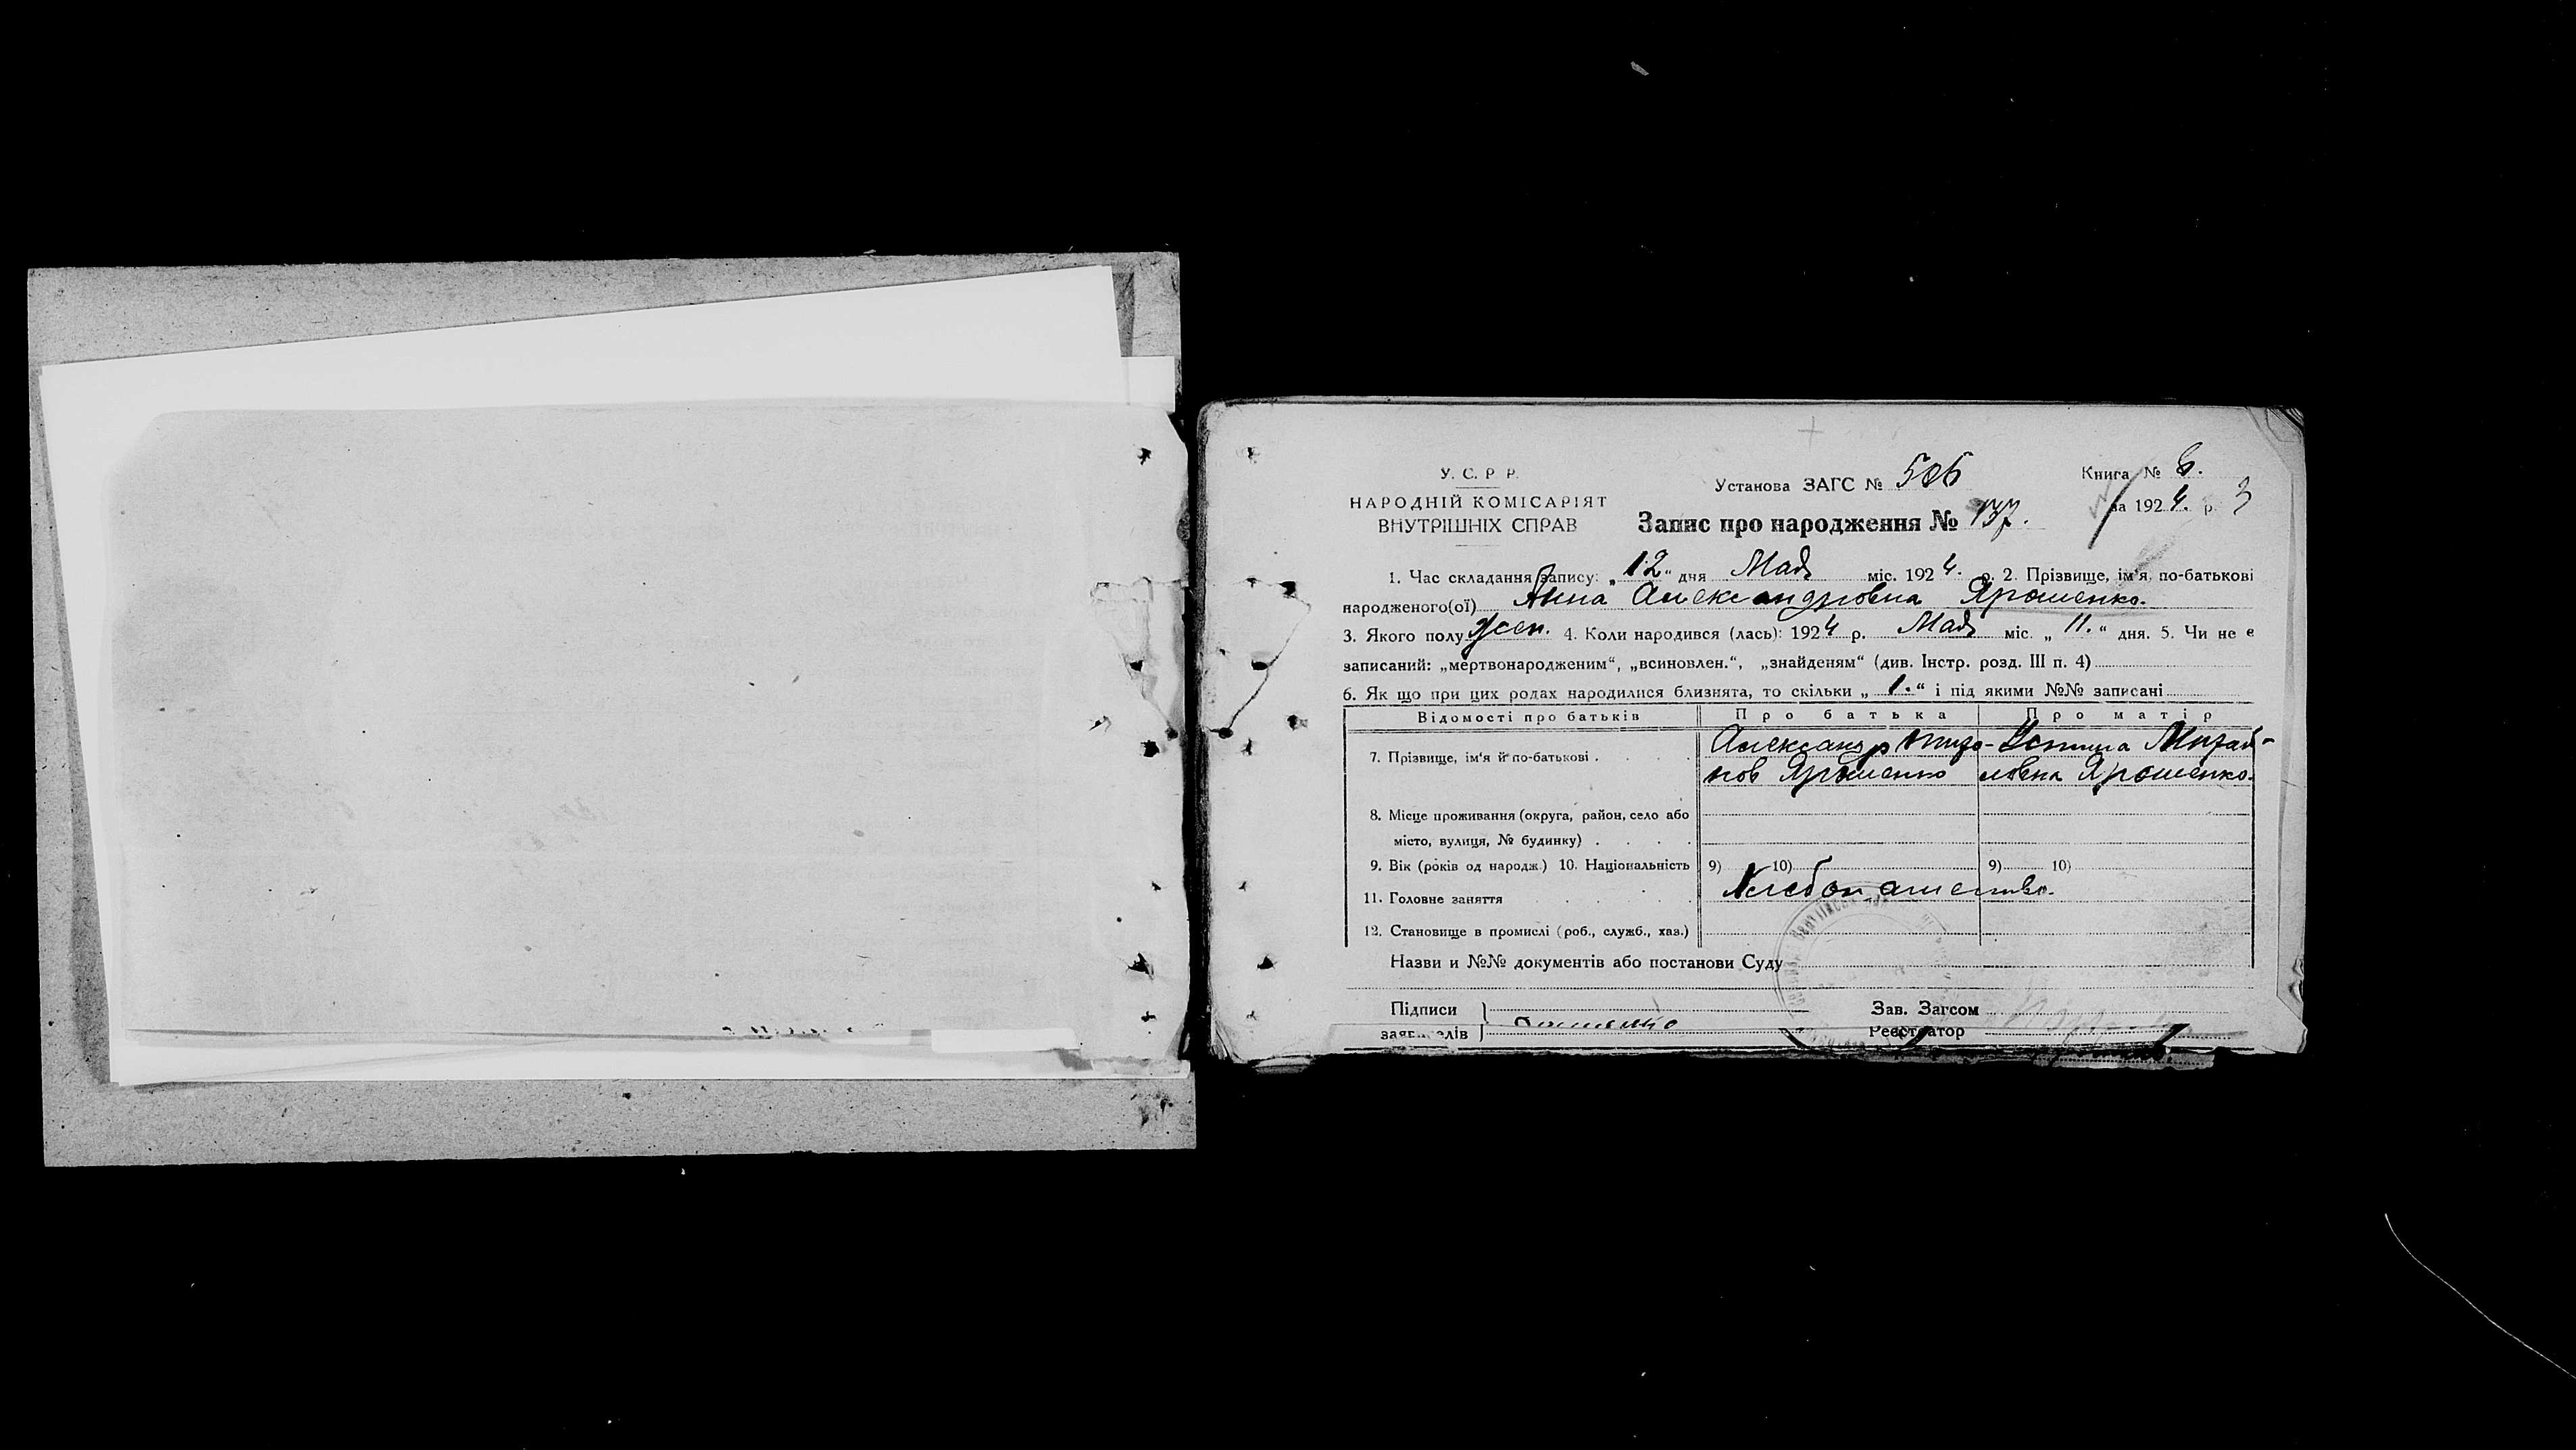 У. С. Р Р.
НАРОДНІЙ КОМІСАРІЯТ
ВНУТРІШНІХ СПРАВ
Установа ЗАГС № 506
Книга № 6.
за 1924. р. 3
Запис про народження № 137.
1. Час складання запису: „12“ дня Мая міс. 1924. р. 2. Прізвище, ім'я, по-батькові
народженого(ої) Анна Александровна Ярошенко.
3. Якого полу жен. 4. Коли народився (лась): 1924 р. Мая міс. „11.“ дня. 5. Чи не є
записаний: „мертвонародженим“, „всиновлен.“, „знайденям“ (див. Інстр. розд. III п. 4)
6. Як що при цих родах народилися близнята, то скільки „1.“ і під якими №№ записані
Відомості про батьків Про батька Про матір
7. Прізвище, ім'я й по-батькові . . . .
Александр
нов Ярошенко
Устина Михай-
ловна Ярошенко.
8. Місце проживання (округа, район, село або
місто, вулиця, № будинку) . . . .
9. Вік (років од народж.) 10. Національність 9) 10) 9) 10)
11. Головне заняття . . . . Хлебопашество.
12. Становище в промислі (роб., служб., хаз.)
Назви и №№ документів або постанови Суду
Підписи Зав. Загсом
Реєстратор